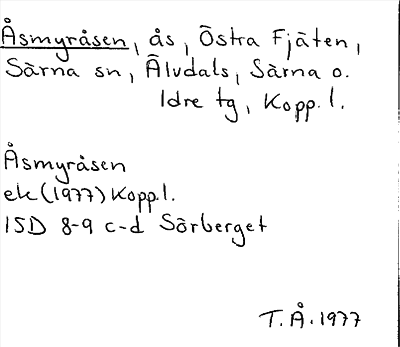 Åsmyråsen, ås, Östra Fjäten,
Särna sn, Älvdals, Särna o.
Idre tg, Kopp. l.
Åsmyråsen
ek (1977) Kopp.l.
15D 8-9 c-d Sörberget
T. Å. 1977